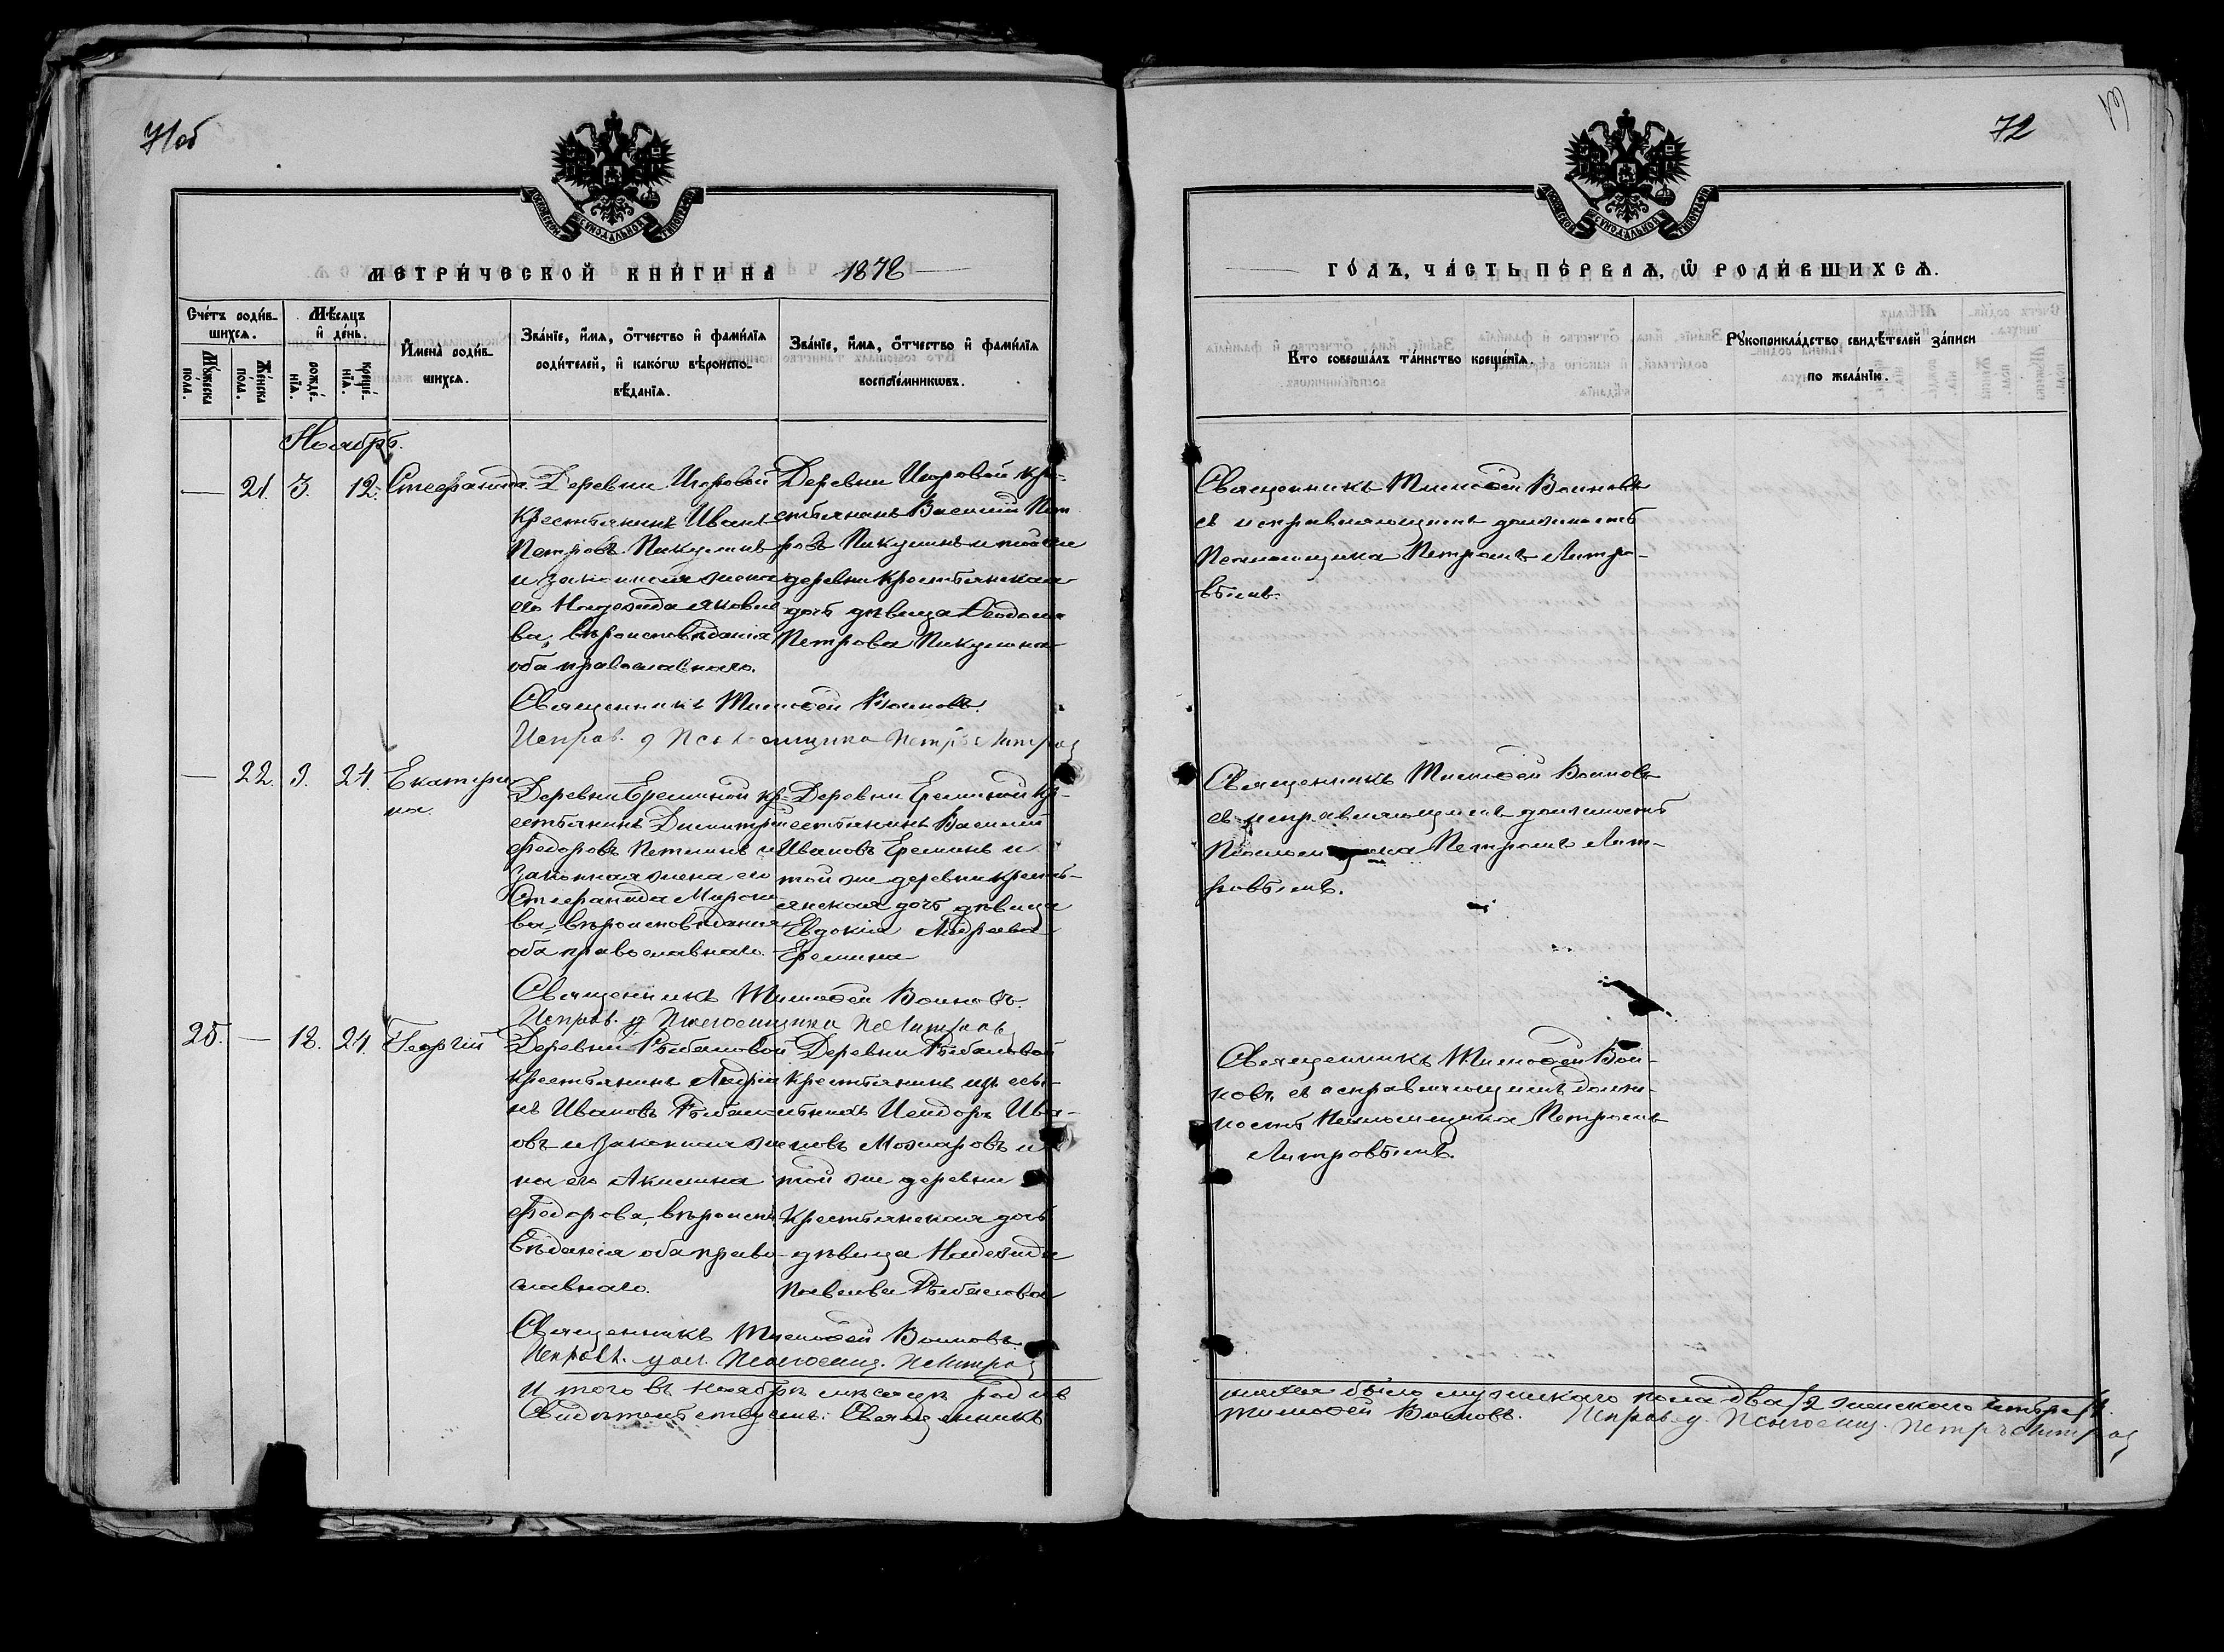 71об
МОСКОВСКОЙ СѴНОДАЛЬНОЙ ТИПОГРАФІИ
МЕТРИ́ЧЕСКОЙ КНИ́ГИ НА 1878
Сче́тъ роди́в-
шихсѧ.
Мꙋ́жеска
пола.
Же́нска
пола.
Мѣ́сѧцъ
и҆ де́нь.
рожде́-
нїѧ.
креще́-
нїѧ.
И҆мена̀ роди́в-
шихсѧ.
Зва́нїе, и҆́мѧ, ѻ҆́тчество и҆ фами́лїѧ
роди́телей, и҆ како́гѡ вѣроиспо-
вѣ́данїѧ.
Зва́нїе, и҆́мѧ, ѻ҆́тчество и҆ фами́лїѧ
воспрїе́мникѡвъ.
Ноябрь.
— 21. 3. 12. Стефанида.
Деревни Игоровой
крестьянинъ Иванъ
Петровъ Пикулинъ
и законная жена
его Надежда Яковле
ва, вѣроисповѣданія
оба православнаго.
Деревни Игоровой кре-
стьянинъ Василій Пет
ровъ Пикулинъ и той же
деревни крестьянская
дочь дѣвица Ѳеодосія
Петрова Пикулина
Священникъ Тимоѳей Воиновъ.
Исправ. д Псаломщика Петръ Литров
— 22. 9. 24. Екатери
на.
Деревни Ереминой кр-
естьянинъ Димитрій
Федоровъ Петининъ и
законная жена его
Стефанида Миро
ва, вѣроисповѣданія
оба православнаго.
Деревни Ереминой кр-
естьянинъ Василій
Ивановъ Ереминъ и
той же деревни кресть-
янская дочь дѣвица
Евдокія Андреева
Еремина
Священникъ Тимоѳей Воиновъ.
Исправ. д Псаломщика П Литровъ
25. — 18. 24. Георгій
Деревни Рыбаловой
крестьянинъ Андрей
Ивановъ
овъ и законная же
на его Акилина
Федорова, вѣроиспо
вѣданія оба право-
славнаго.
Деревни Рыбаловой
крестьянинъ
Исидоръ Ива-
новъ Мохнаровъ и
той же деревни
крестьянская дочь
дѣвица Надежда
Павлова Рыбалова
Священникъ Тимоѳей Воиновъ.
Исправ. дол. Псаломщ. П Литров
Итого въ Ноябрѣ мѣсяцѣ родив
Свидѣтельствуемъ: Священникъ
72
МОСКОВСКОЙ СѴНОДАЛЬНОЙ ТИПОГРАФІИ
ГО́ДЪ, ЧА́СТЬ ПЕ́РВАѦ, Ѽ РОДИ́ВШИХСѦ.
Кто̀ соверша́лъ та́инство креще́нїѧ.
Рꙋкоприкла́дство свидѣ́телей за́писи
по жела́нїю.
Священникъ Тимоѳей Воиновъ
съ исправляющимъ должность
Псаломщика Петромъ Литро-
вымъ.
Священникъ Тимоѳей Воиновъ
съ исправляющимъ должность
Псаломщика Петромъ Лит-
ровымъ.
Священникъ Тимоѳей Вои-
новъ, съ исправляющимъ долж-
ность Псаломщика Петромъ
Литровымъ.
шихся было мужскаго пола два /2 женскаго четыре /4.
Тимоѳей Воиновъ. Исправ. д. Псаломщ. Петръ Литров